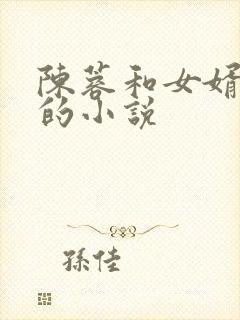 陳蓉和女婿
的小說
孫佳